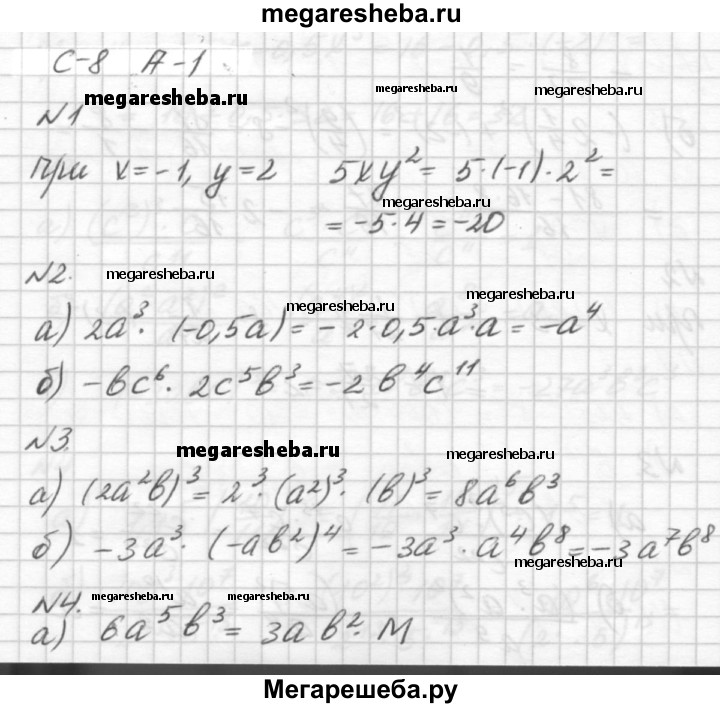 megaresheba.ru
С-8 А-1
megaresheba.ru megaresheba.ru
№1
при x=-1, y=2 5xy²= 5·(-1)·2²=
megaresheba.ru
= -5·4 = -20
№2. megaresheba.ru
megaresheba.ru megaresheba.ru
а) 2a³· (-0,5a) = - 2·0,5·a³·a = -a⁴
б) -bc⁶· 2c⁵b³= -2 b⁴c¹¹
№3. megaresheba.ru
а) (2a²b)³= 2³·(a²)³· (b)³= 8a⁶b³
б) -3a³· (-ab²)⁴ = -3a³·a⁴b⁸= -3a⁷b⁸
megaresheba.ru
№4. megaresheba.ru megaresheba.ru
а) 6a⁵b³= 3ab²· M
Мегарешеба.ру